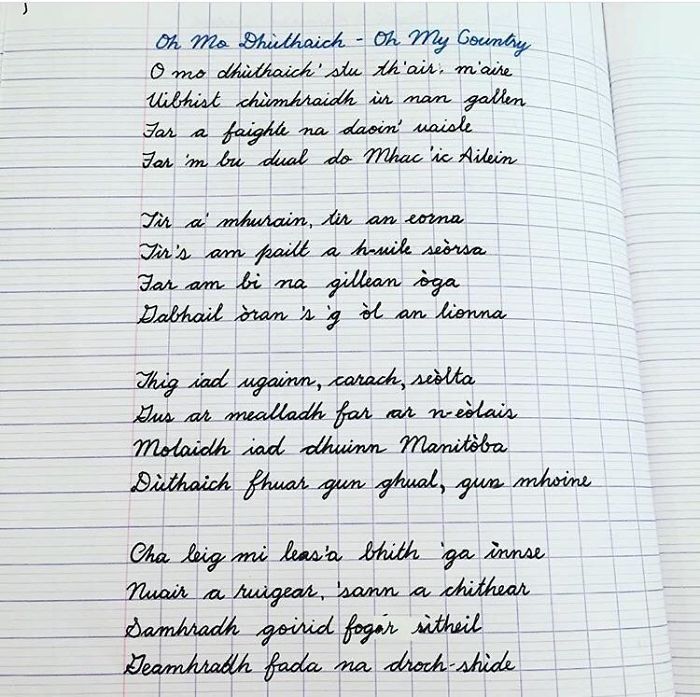 Oh Mo Dhùthaich - Oh My Country
O mo dhùthaich' stu th'air. m'aire
Uibhist chùmhraidh ùr nan gallen
Far a faighte na daoin' uaisle
Far 'm bu dual do Mhac 'ic Ailein
Tìr a' mhurain, tìr an eorna
Tìr's am pailt a h-uile seòrsa
Far am bi na gillean òga
Gabhail òran 's 'g òl an lionna
Thig iad ugainn, carach, seòlta
Gus ar mealladh far ar n-eòlais
Molaidh iad dhuinn Manitòba
Dùthaich fhuar gun ghual, gun mhoine
Cha leig mi leas'a bhith 'ga ìnnse
Nuair a ruigear, 'sann a chithear
Samhradh goirid fogár sìtheil
Geamhradh fada na droch-shìde